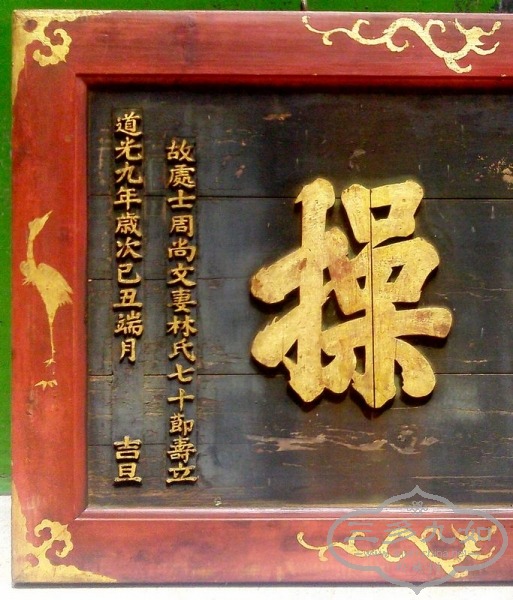 操
故處士周尚文妻林氏七十節壽立
道光九年歲次己丑端月 吉旦
三多九如